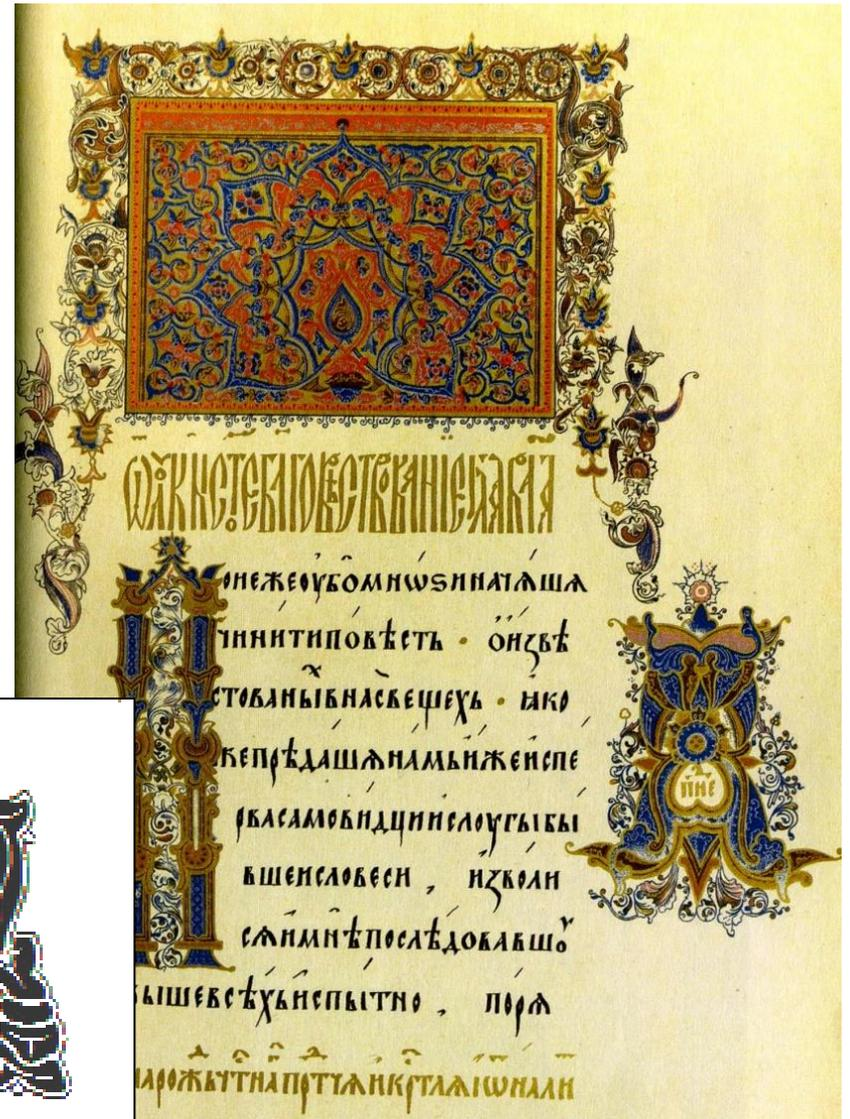 ѿ лꙋкы ст҃ое бл҃говѣствованїе гл҃ава҃ а҃
Понеже оубо мнѡѕи начѧшѧ
чинити повѣсть · о извѣ
стованыⷯ в насъ вещехъ · ꙗко
же прѣдашѧ намъ иже испе
рва самовидци и слоугы бы
вшеи словеси , изволи
сѧ и мнѣ послѣдовавшоу
выше всѣхъ испытно , порѧ